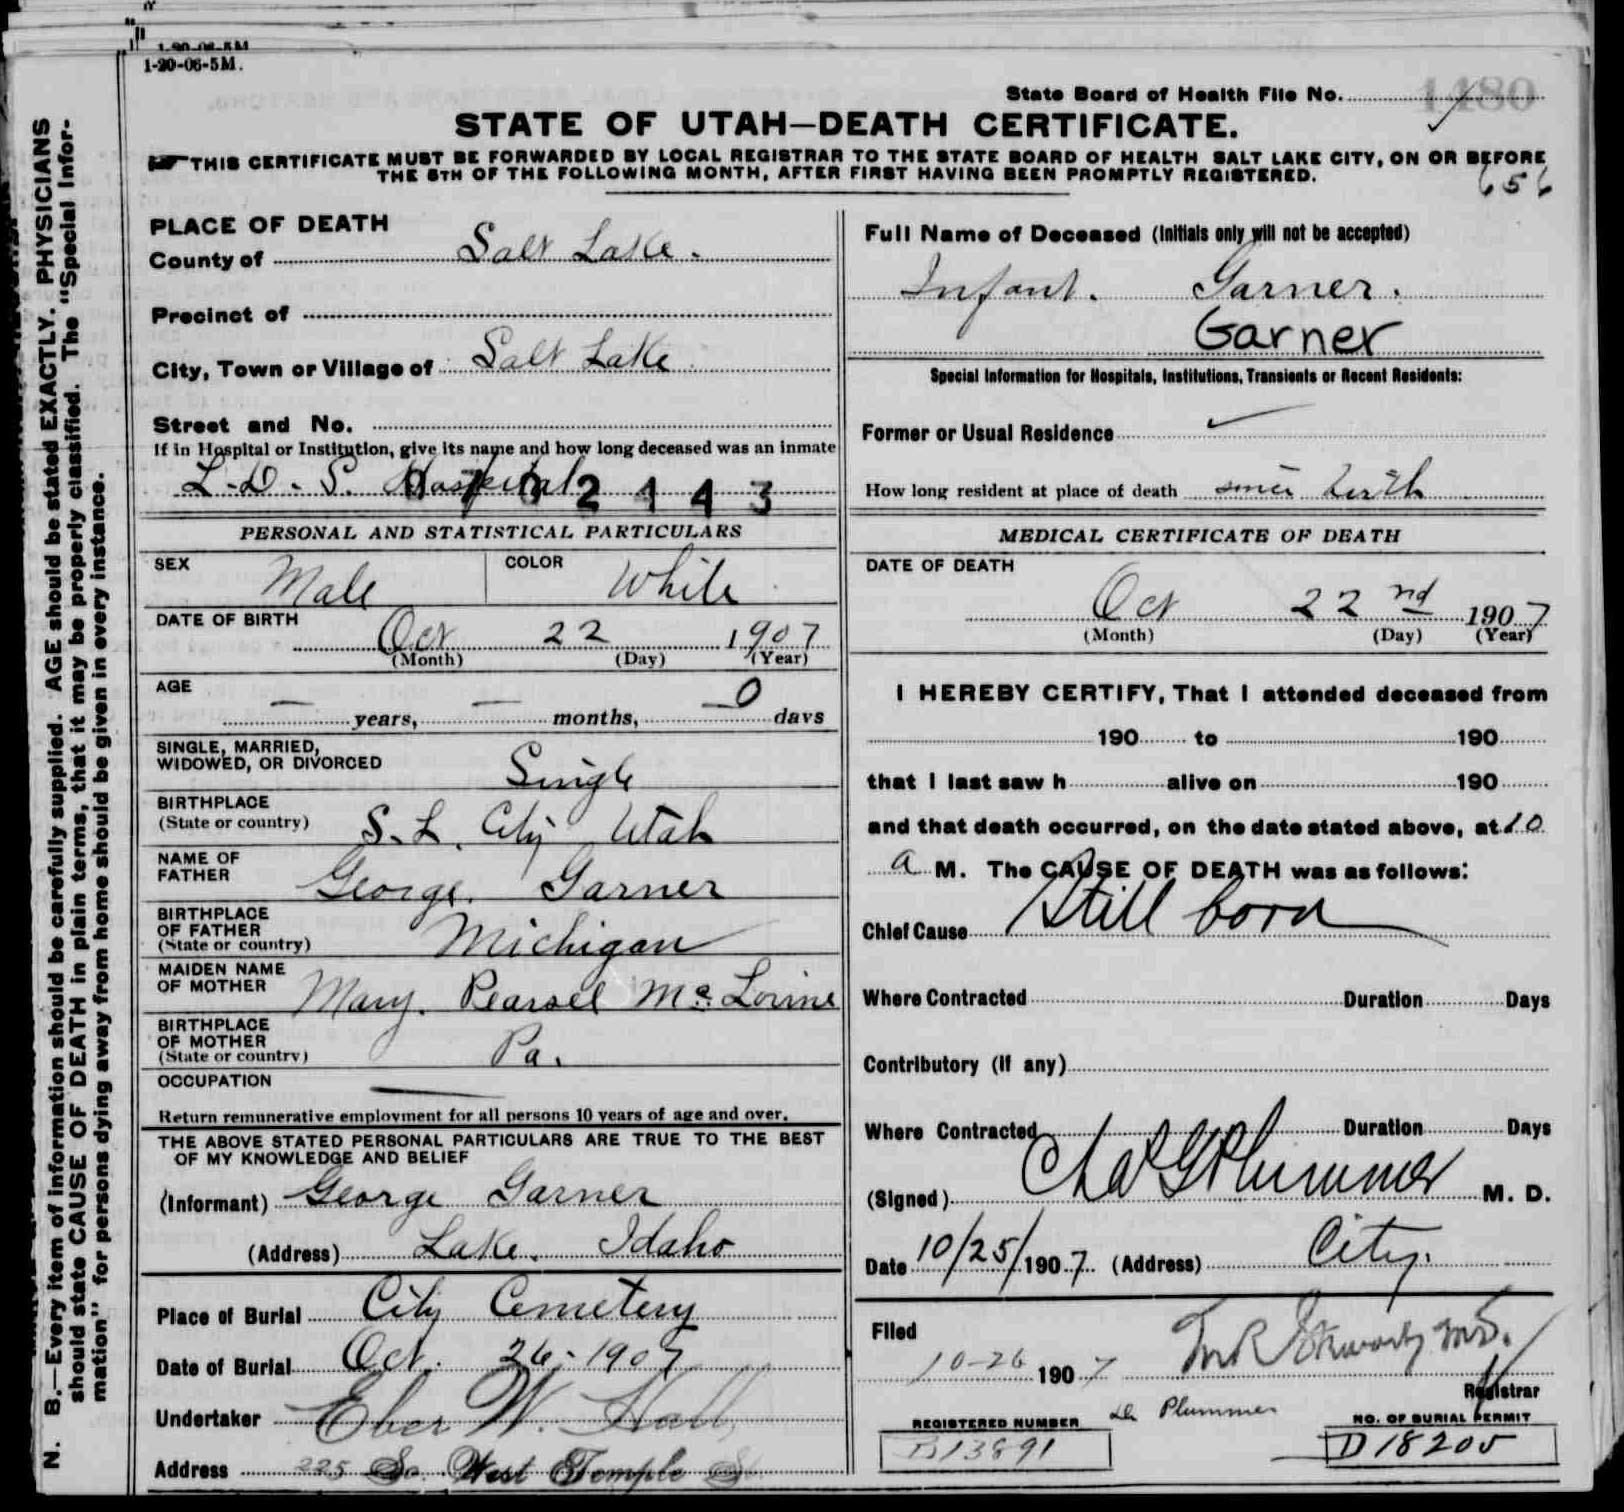 1-20-06-5M.
State Board of Health File No. 1480
STATE OF UTAH—DEATH CERTIFICATE.
THIS CERTIFICATE MUST BE FORWARDED BY LOCAL REGISTRAR TO THE STATE BOARD OF HEALTH SALT LAKE CITY, ON OR BEFORE
THE 5TH OF THE FOLLOWING MONTH, AFTER FIRST HAVING BEEN PROMPTLY REGISTERED.
656
N. B.—Every item of information should be carefully supplied. AGE should be stated EXACTLY. PHYSICIANS
should state CAUSE OF DEATH in plain terms, that it may be properly classified. The "Special Infor-
mation" for persons dying away from home should be given in every instance.
PLACE OF DEATH
County of Salt Lake.
Precinct of
City, Town or Village of Salt Lake
Street and No.
If in Hospital or Institution, give its name and how long deceased was an inmate
L.D.S. Hospital
2443
PERSONAL AND STATISTICAL PARTICULARS
SEX Male COLOR White
DATE OF BIRTH
Oct 22 1907
(Month) (Day) (Year)
AGE
— years, — months, 0 days
SINGLE, MARRIED,
WIDOWED, OR DIVORCED Single
BIRTHPLACE
(State or country) S.L. City Utah
NAME OF
FATHER George Garner
BIRTHPLACE
OF FATHER
(State or country) Michigan
MAIDEN NAME
OF MOTHER Mary
BIRTHPLACE
OF MOTHER
(State or country) Pa.
OCCUPATION —
Return remunerative employment for all persons 10 years of age and over.
THE ABOVE STATED PERSONAL PARTICULARS ARE TRUE TO THE BEST
OF MY KNOWLEDGE AND BELIEF
(Informant) George Garner
(Address) Lake. Idaho
Place of Burial City Cemetery
Date of Burial Oct. 26-1907
Undertaker Eber W. Hall
Address 225 So. West Temple St
Full Name of Deceased (Initials only will not be accepted)
Infant. Garner.
Garner
Special Information for Hospitals, Institutions, Transients or Recent Residents:
Former or Usual Residence
How long resident at place of death since birth
MEDICAL CERTIFICATE OF DEATH
DATE OF DEATH
Oct 22nd 1907
(Month) (Day) (Year)
I HEREBY CERTIFY, That I attended deceased from
190 to 190
that I last saw h alive on 190
and that death occurred, on the date stated above, at 10
a M. The CAUSE OF DEATH was as follows:
Chief Cause Still born
Where Contracted Duration Days
Contributory (if any)
Where Contracted Duration Days
(Signed) Chas G Plummer M. D.
Date 10/25/1907. (Address) City.
Filed
10-26 1907
Registrar
REGISTERED NUMBER Dr Plummer NO. OF BURIAL PERMIT
B13891 D18205